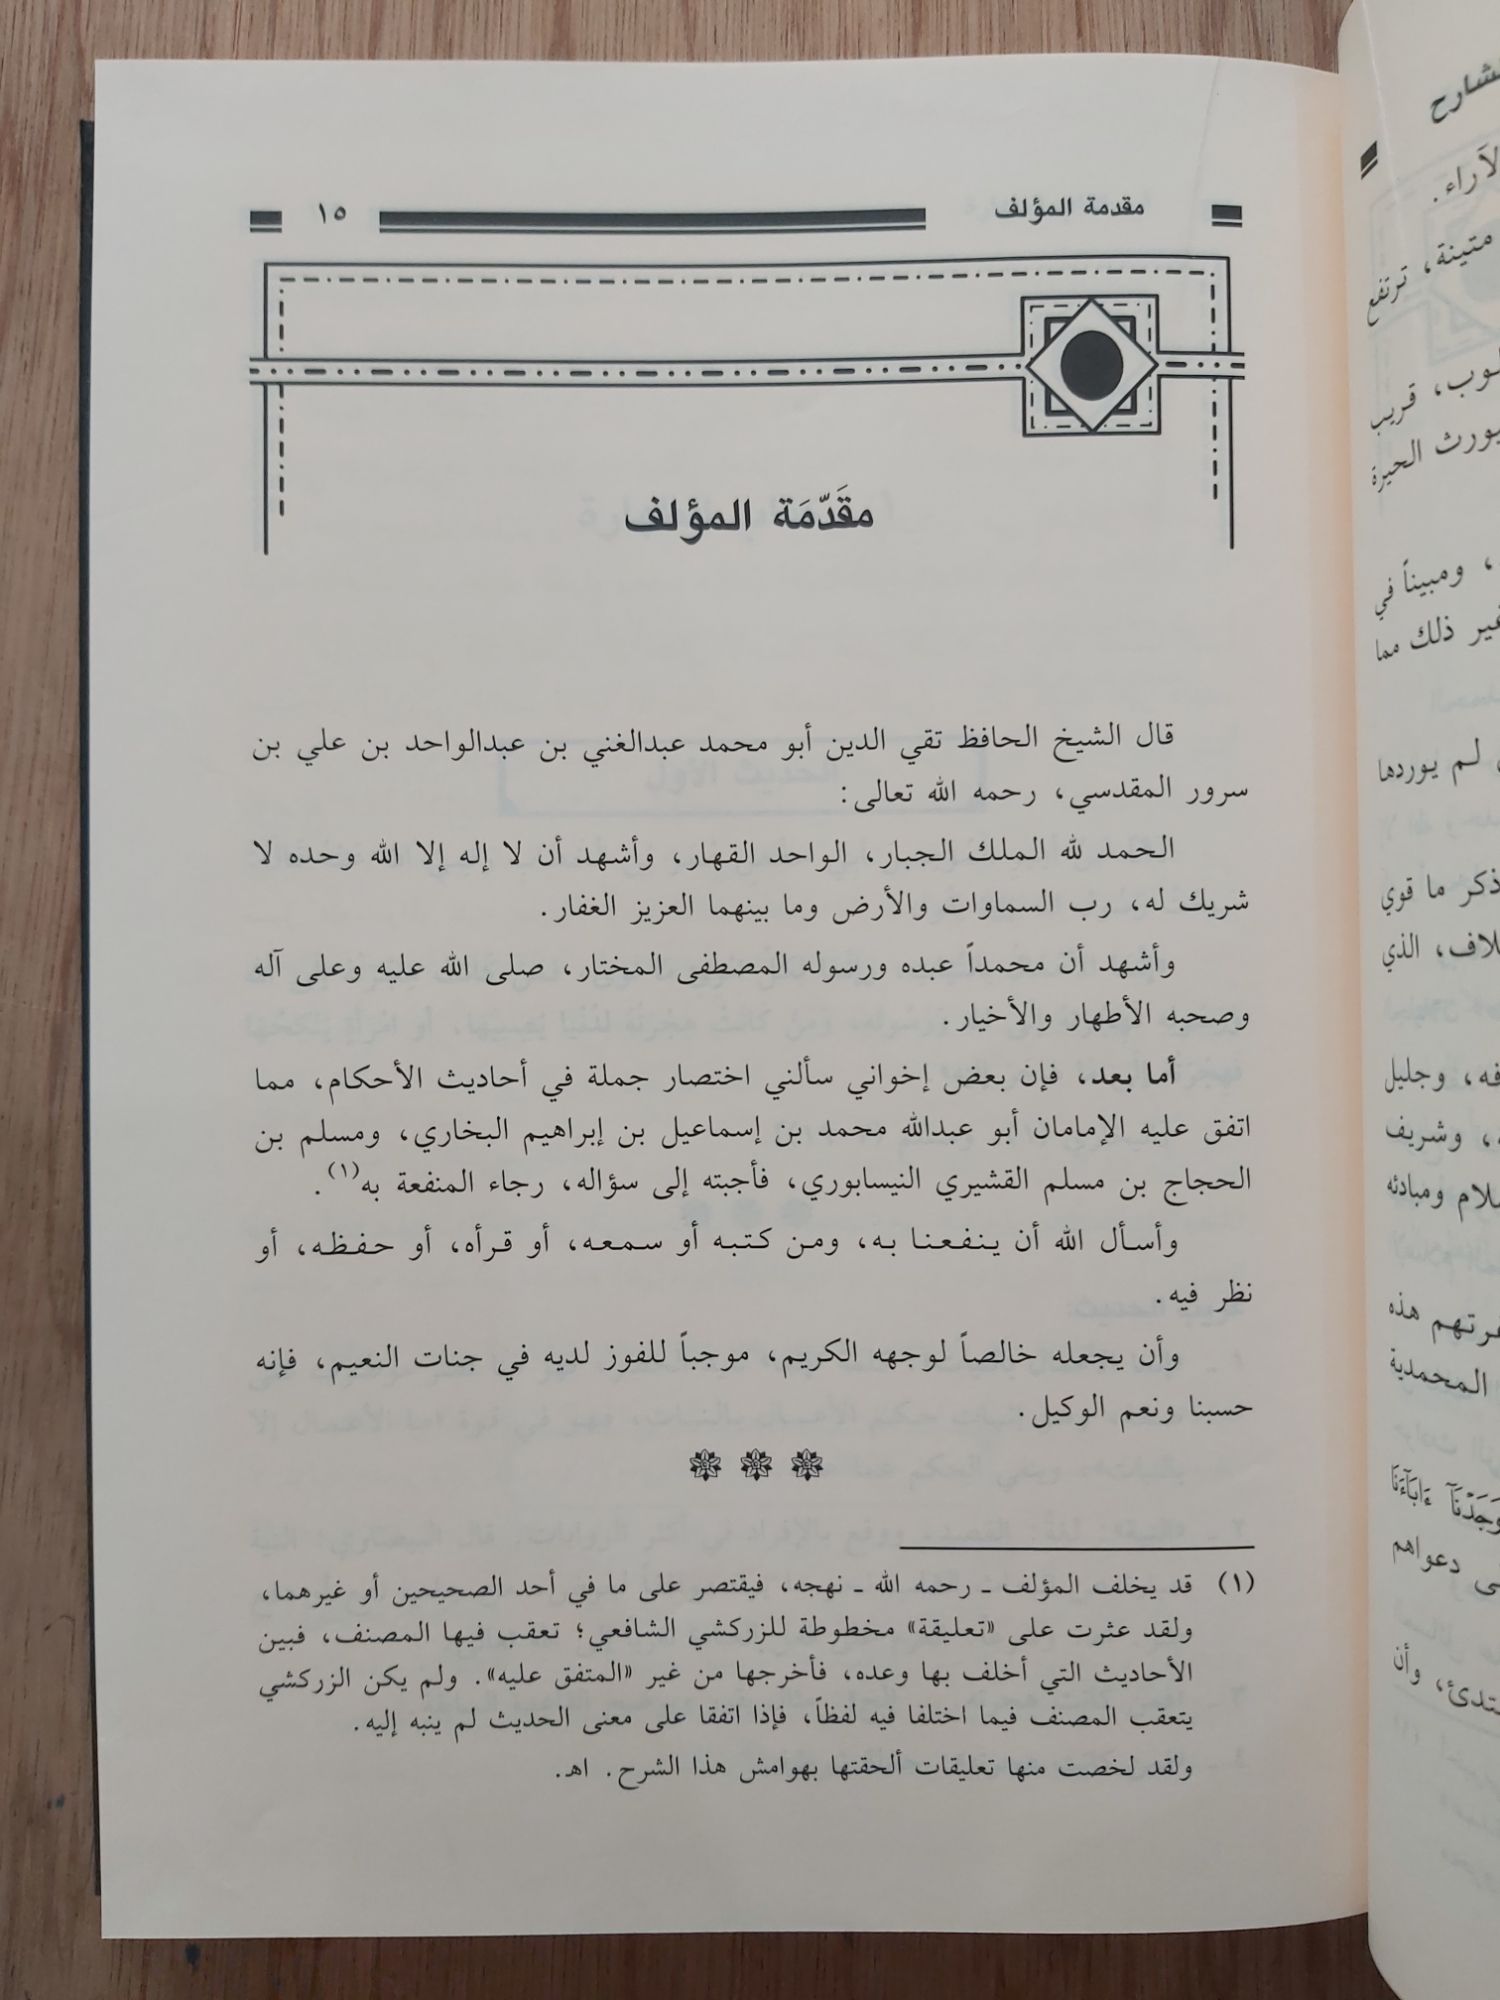 مقدمة المؤلف ١٥
مقَدّمَة المؤلف
قال الشيخ الحافظ تقي الدين أبو محمد عبدالغني بن عبدالواحد بن علي بن
سرور المقدسي، رحمه الله تعالى:
الحمد لله الملك الجبار، الواحد القهار، وأشهد أن لا إله إلا الله وحده لا
شريك له، رب السماوات والأرض وما بينهما العزيز الغفار.
وأشهد أن محمداً عبده ورسوله المصطفى المختار، صلى الله عليه وعلى آله
وصحبه الأطهار والأخيار.
أما بعد، فإن بعض إخواني سألني اختصار جملة في أحاديث الأحكام، مما
اتفق عليه الإمامان أبو عبدالله محمد بن إسماعيل بن إبراهيم البخاري، ومسلم بن
الحجاج بن مسلم القشيري النيسابوري، فأجبته إلى سؤاله، رجاء المنفعة به(١).
وأسأل الله أن ينفعنا به، ومن كتبه أو سمعه، أو قرأه، أو حفظه، أو
نظر فيه.
وأن يجعله خالصاً لوجهه الكريم، موجباً للفوز لديه في جنات النعيم، فإنه
حسبنا ونعم الوكيل.
(١) قد يخلف المؤلف ـ رحمه الله ـ نهجه، فيقتصر على ما في أحد الصحيحين أو غيرهما،
ولقد عثرت على «تعليقة» مخطوطة للزركشي الشافعي؛ تعقب فيها المصنف، فبين
الأحاديث التي أخلف بها وعده، فأخرجها من غير «المتفق عليه». ولم يكن الزركشي
يتعقب المصنف فيما اختلفا فيه لفظاً، فإذا اتفقا على معنى الحديث لم ينبه إليه.
ولقد لخصت منها تعليقات ألحقتها بهوامش هذا الشرح. اهـ.
الآراء.
متينة، ترتفع
قريب
يورث الحيرة
، ومبيناً في
غير ذلك مما
لم يوردها
ذكر ما قوي
، الذي
، وجليل
، وشريف
ومبادئه
هذه
المحمدية
وَجَدْنَآ ءَابَآءَنَا
دعواهم
، وأن